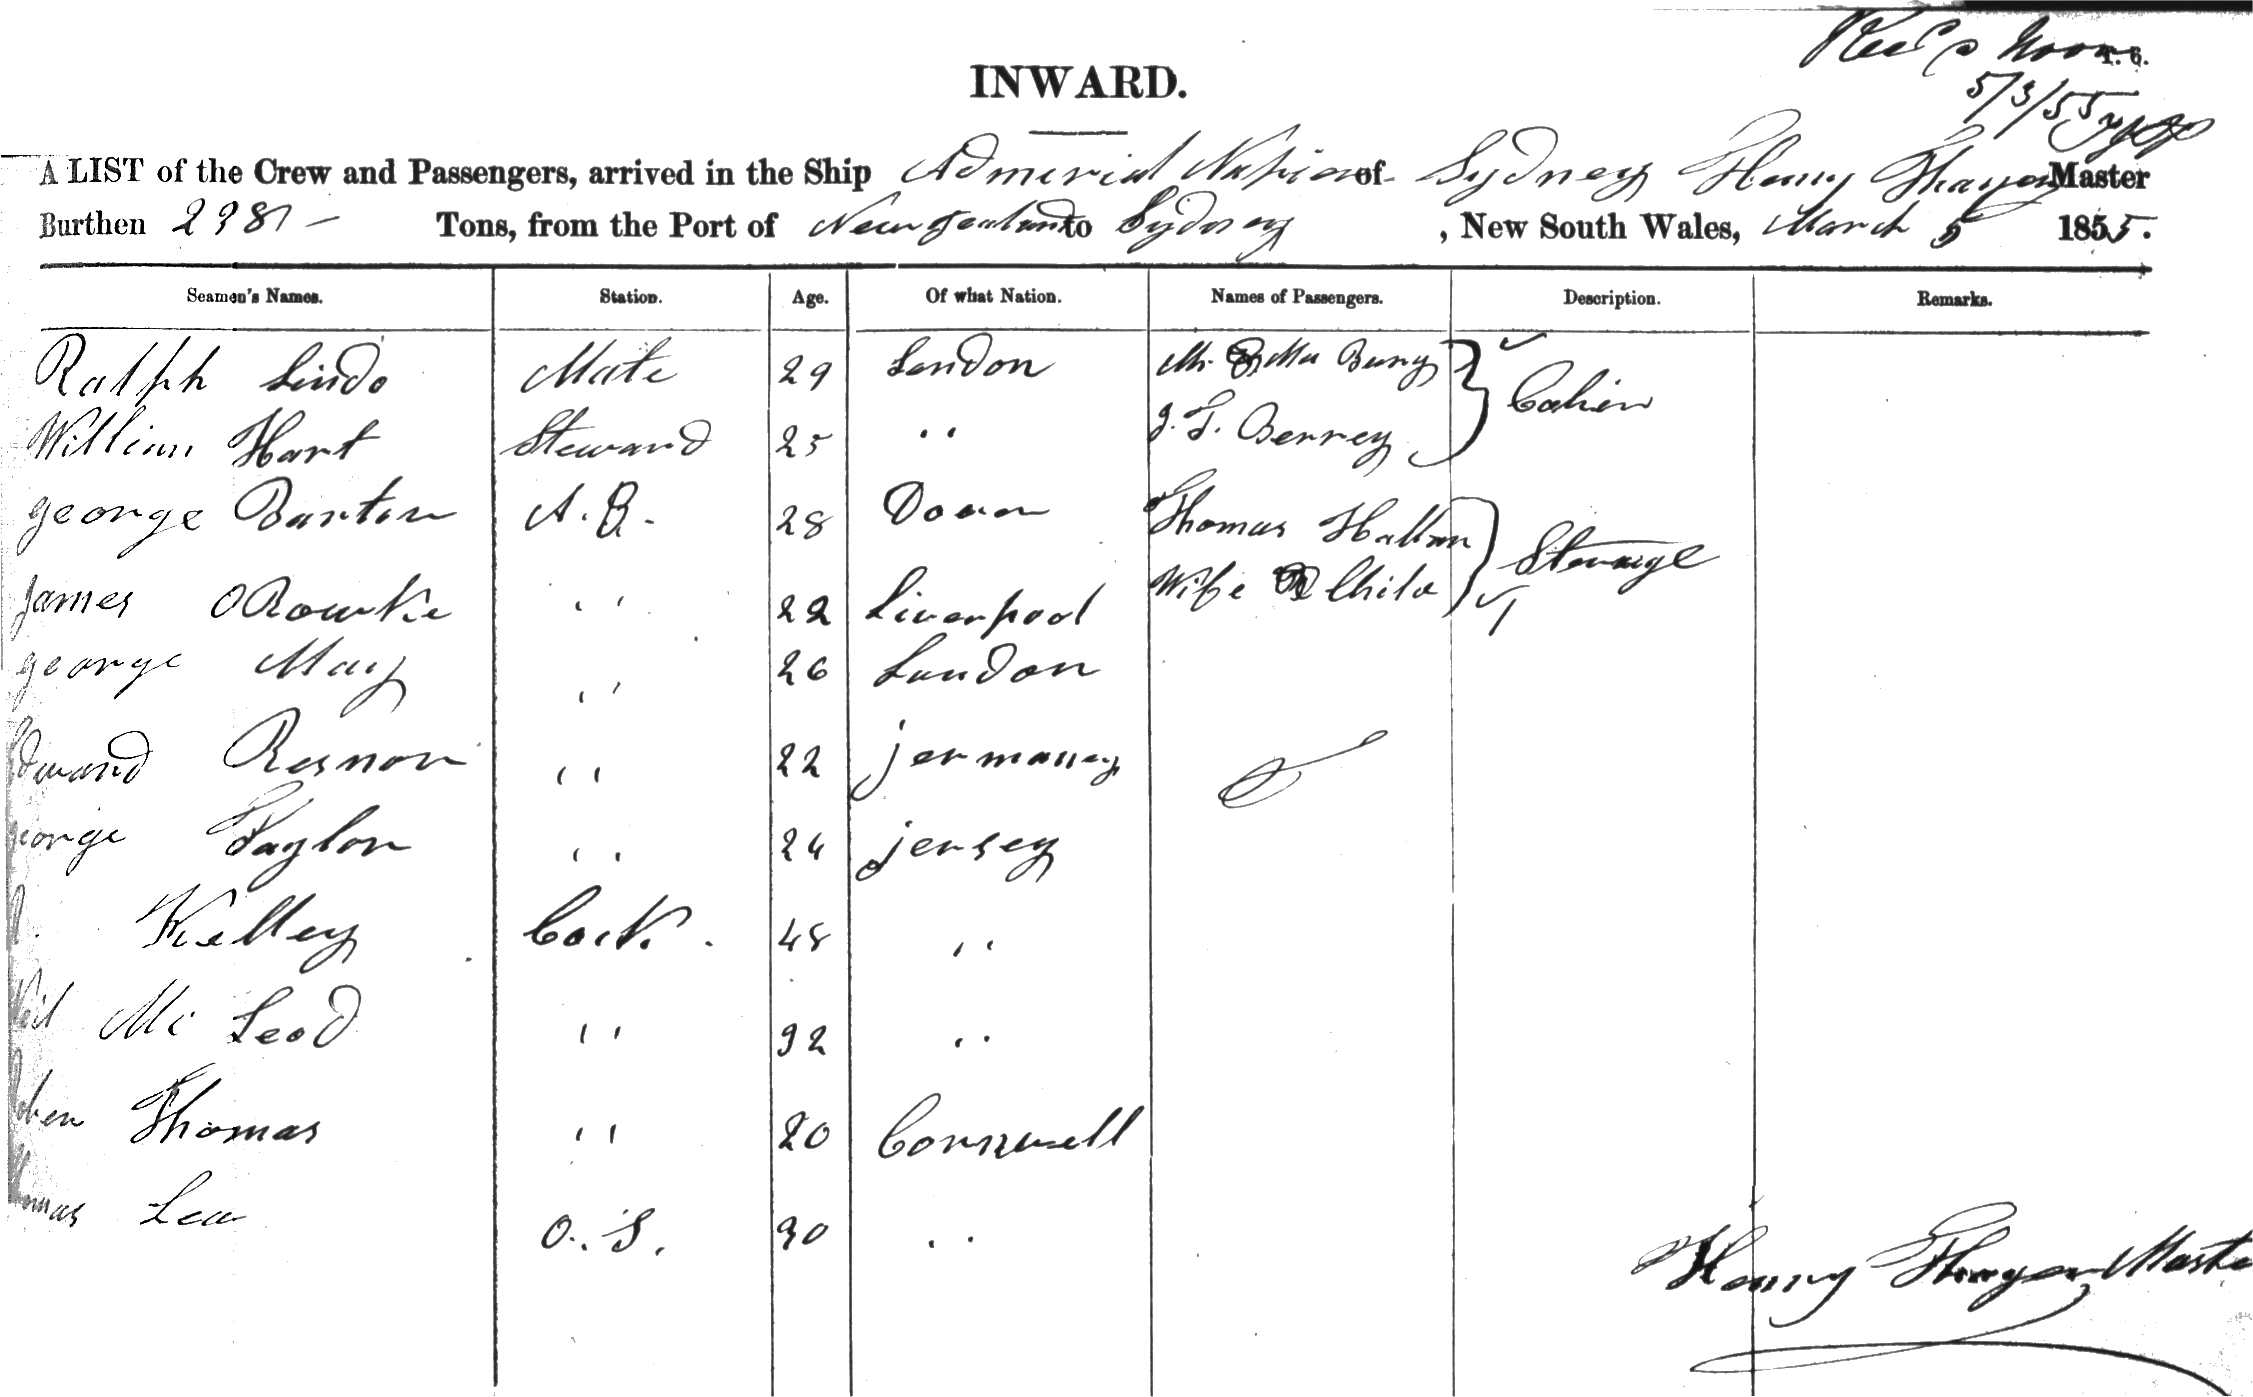 Rec'd Noon T. 6.
5/3/55
INWARD.
A LIST of the Crew and Passengers, arrived in the Ship Admerial Napier of Sydney Henry Thayer Master
Burthen 238 Tons, from the Port of New Zealand to Sydney, New South Wales, March 5 1855.
Seamen's Names. Station. Age. Of what Nation. Names of Passengers. Description. Remarks.
Ralph Lindo Mate 29 London Mr. & Mrs Bury
William Hart Steward 25 " J. T. Berrey Cabin
george Barton A. B. 28 Dover Thomas Hallam Steurage
James ORourke " 22 Liverpool Wife & Child
george May " 26 London
Edward Resnor " 22 jermaney
george Taylor " 24 jersey
Kelley Cook. 48 "
Neil Mc Leod " 32 "
Thomas " 20 Cornwell
Thomas Lea O. S. 30 "
Henry Thayer Master